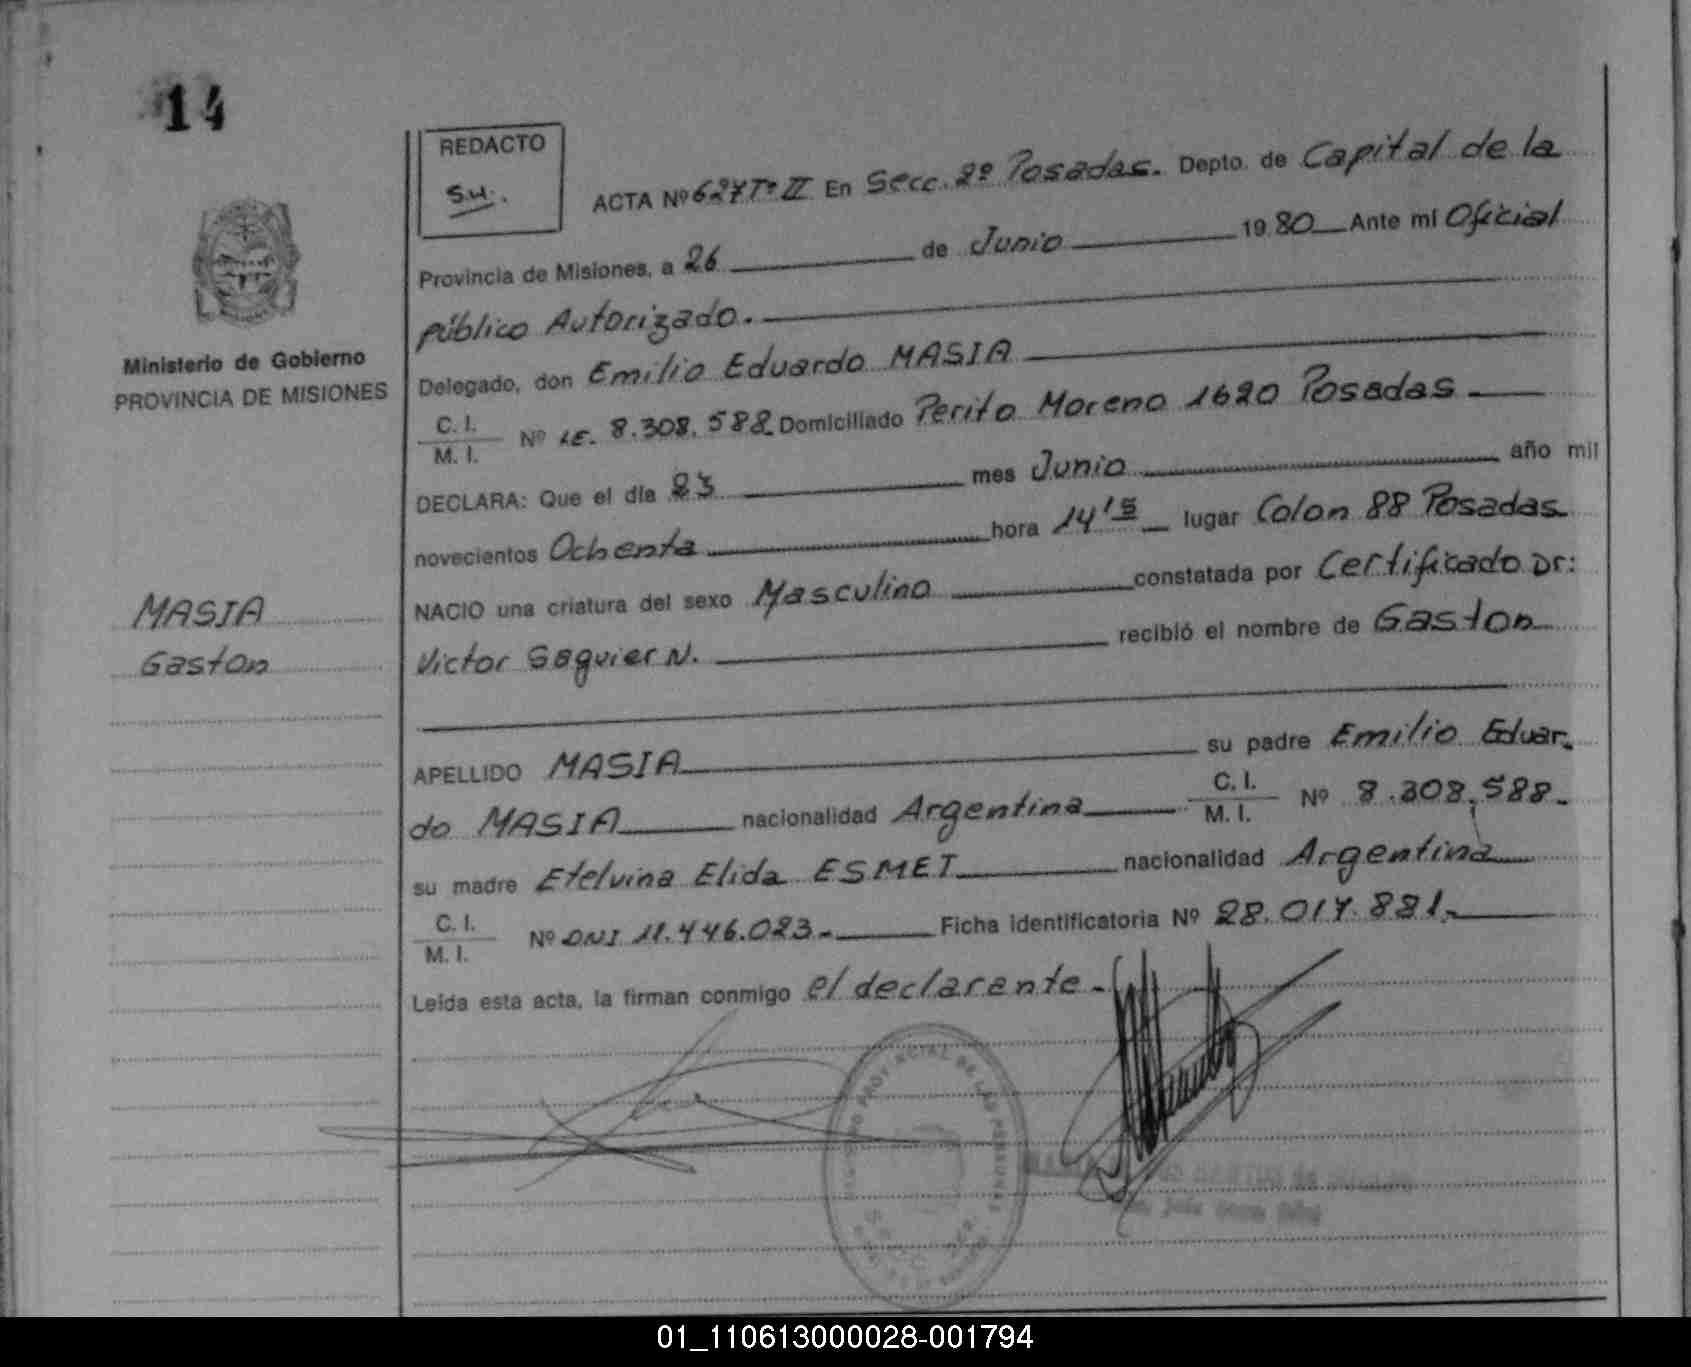 14
REDACTO
S.H.
ACTA Nº 627 Tº II En Secc. 2º Posadas. Depto. de Capital de la
Provincia de Misiones, a 26 de Junio 1980 Ante mí Oficial
público Autorizado.
Delegado, don Emilio Eduardo MASIA
C. I.
M. I. Nº LE. 8.308.588 Domiciliado Perito Moreno 1620 Posadas
DECLARA: Que el día 23 mes Junio año mil
novecientos Ochenta hora 14'15 lugar Colon 88 Posadas
NACIO una criatura del sexo Masculino constatada por Certificado Dr:
Victor Saguier N. recibió el nombre de Gaston
APELLIDO MASIA su padre Emilio Eduar-
do MASIA nacionalidad Argentina C. I. M. I. Nº 8.308.588.
su madre Etelvina Elida ESMET nacionalidad Argentina
C. I.
M. I. Nº DNI 11.446.023.- Ficha identificatoria Nº 28.017.821.-
Leída esta acta, la firman conmigo el declarante.-
Ministerio de Gobierno
PROVINCIA DE MISIONES
MASIA
Gaston
REGISTRO PROVINCIAL DE LAS PERSONAS
01_110613000028-001794